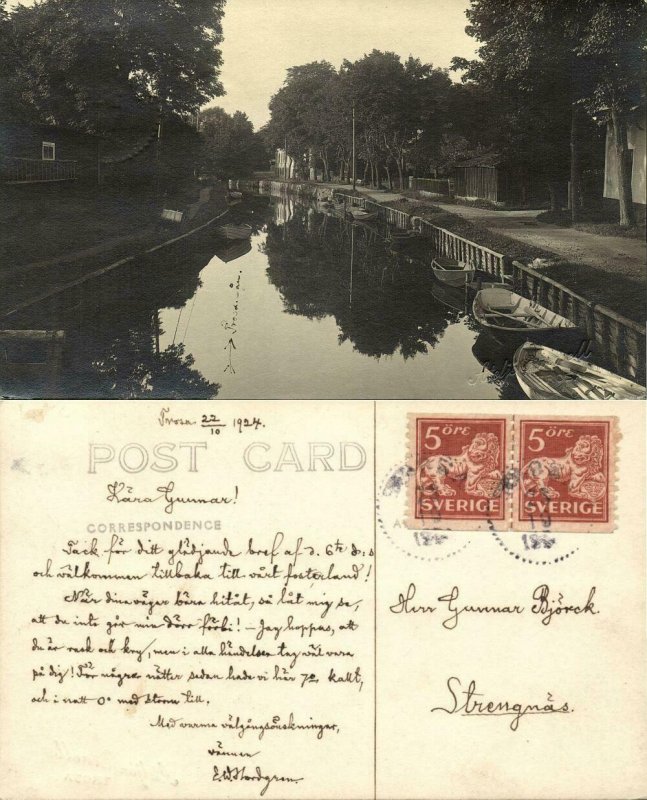 Trosa.
Trosa 22/10 1924.
POST CARD
Kära Gunnar!
CORRESPONDENCE
Tack för ditt glädjande bref af d. 6te d:s
och välkommen tillbaka till vårt fosterland!
När dina vägar bära hitåt, så låt mig se,
att du inte går min dörr förbi! – Jag hoppas, att
du är rask och kry, men i alla händelser tag väl vara
på dig! För några nätter sedan hade vi här 7° kallt,
och i natt 0° med storm till.
Med varma välgångsönskningar,
vännen
E.W. Nordgren
5 ÖRE
SVERIGE
5 ÖRE
SVERIGE
Herr Gunnar Björck.
Strengnäs.